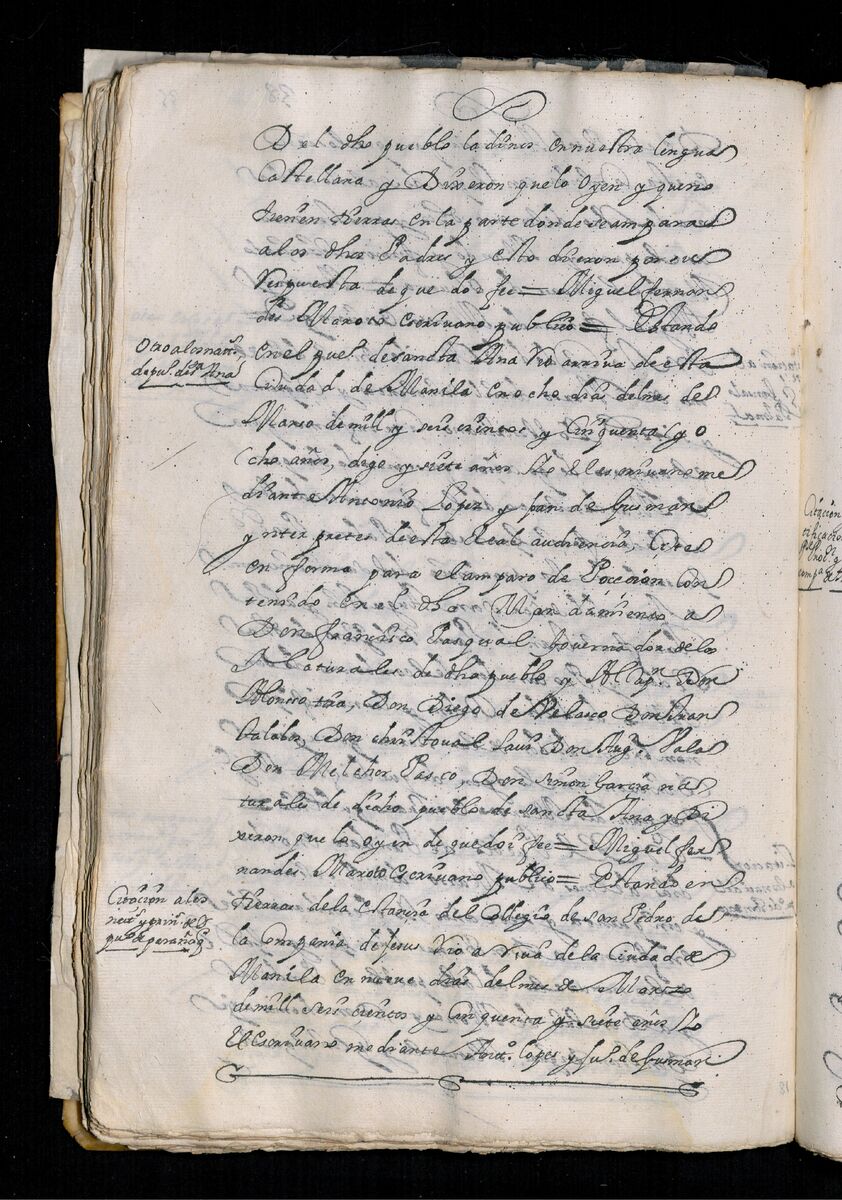 Del dho pueblo ladinos en nuestra lengua
Castellana y Dixeron que lo oyen y que no
tienen tierras en la parte donde se ampara
a los dhos Padres y esto dixeron por su
Respuesta de que doi fee = Miguel fernan
des Maroto escriuano publico = Estando
en el puel. de sancta Ana rio arriua de esta
Ciudad de Manila en ocho dias del mes de
Marso de mill y seis cientos y cinquenta y o
cho años, digo y siete años Yo el escriuano me
diante Antonio Lopez y juan de Gusman
ynterpretes de esta Real audiencia, Cite
en forma para el amparo de Poccecion con
tenido en el dho Mandamiento a
Don francisco Pasqual Gouernador de los
Naturales de dho pueblo y Don
Alonso Don Diego de Velasco Don Juan
Don christoual Don Aug.
Don Melchor Pasco, Don simon Garcia na
turales de dicho pueblo de sancta Ana y Di
xeron que lo oyen de que doi fee = Miguel fer
nandes Maroto escriuano publico = Estando en
tierras de la estancia del Collegio de san Pedro de
la Compania de Jesus rio a rriua de la Ciudad de
Manila en nueue dias del mes de Marzo
de mill seis cientos y cinquenta y siete años Yo
El escriuano mediante Anto. lopes y Ju.o de Gusman
Otro a los nats.
de pu.o de s.ta Ana
Citacion a los
nats. y prin.s
pu.o de
Citacion